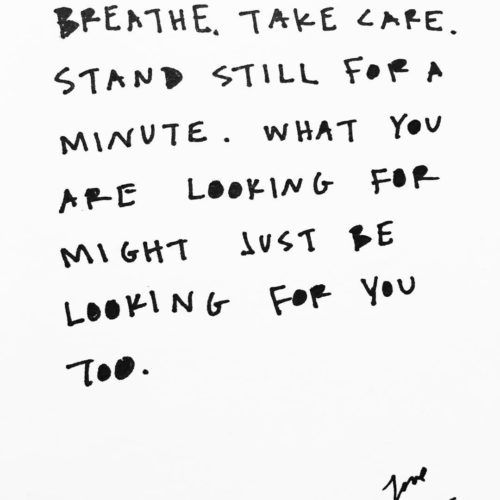 BREATHE. TAKE CARE.
STAND STILL FOR A
MINUTE. WHAT YOU
ARE LOOKING FOR
MIGHT JUST BE
LOOKING FOR YOU
TOO.
love